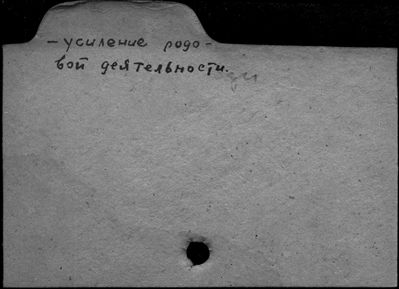 – усиление родо-
вой деятельности.